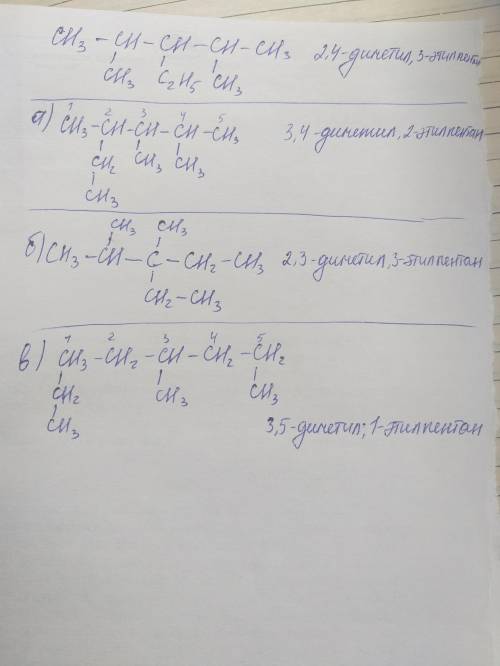 CH₃ – CH – CH – CH – CH₃ 2,4-диметил, 3-этилпентан
CH₃ C₂H₅ CH₃
а) CH₃ – CH – CH – CH – CH₃ 3,4-диметил, 2-этилпентан
1 2 3 4 5
CH₂ CH₃ CH₃
CH₃
CH₃ CH₃
б) CH₃ – CH – C – CH₂ – CH₃ 2,3-диметил, 3-этилпентан
CH₂ – CH₃
1 2 3 4 5
в) CH₃ – CH₂ – CH – CH₂ – CH₂
CH₂ CH₃ CH₃
CH₃
3,5-диметил; 1-этилпентан